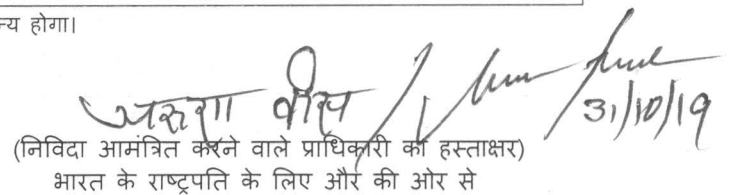 न्य होगा।
अरूणा
31/10/19
(निविदा आमंत्रित करने वाले प्राधिकारी का हस्ताक्षर)
भारत के राष्ट्रपति के लिए और की ओर से